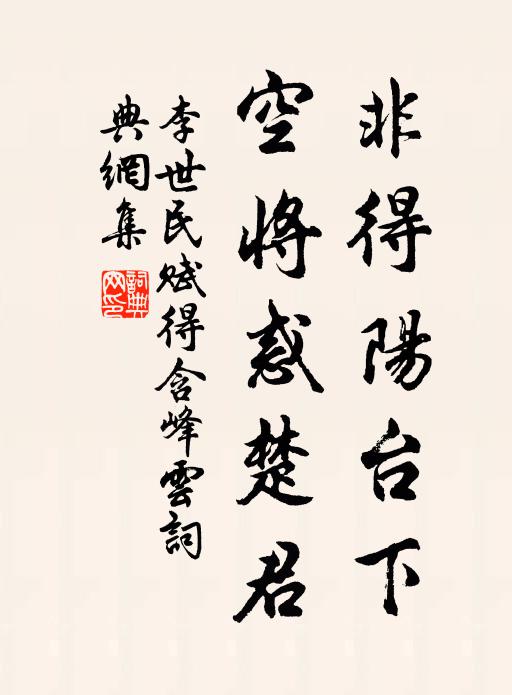 非得陽台下
空將惑楚君
李世民賦得含峰雲詞
典網集
詞典网印